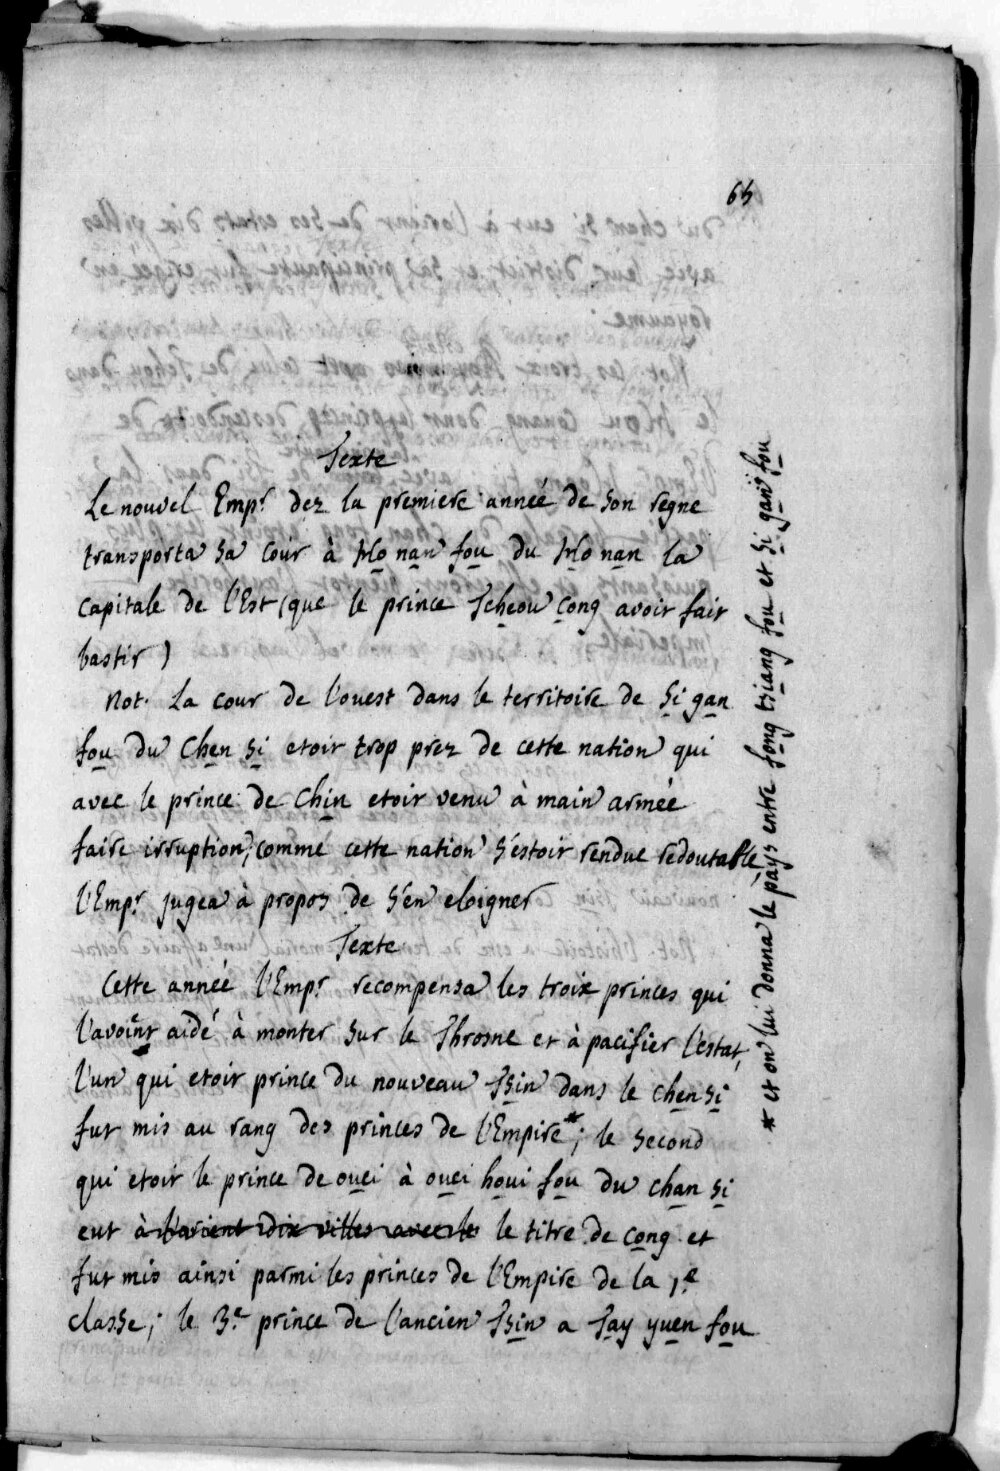 65
Texte
Le nouvel Emp.r dez la premiere anneé de son regne
transporta sa cour à Ho nan fou du Ho nan la
capitale de l'Est (que le prince Tcheou cong avoit fait
bastir)
Not. La cour de l'ouest dans le territoire de Si gan
fou du Chen si etoit trop prez de cette nation qui
avec le prince de Chin etoit venu à main armée
faire irruption, comme cette nation s'estoit rendue redoutable
l'Emp.r jugea à propos de s'en eloigner
Texte
Cette anneé l'Emp.r recompensa les troix princes qui
l'avoient aidé à monter sur le Throsne et à pacifier l'estat,
l'un qui etoit prince du nouveau Tsin dans le chen si
fut mis au rang des princes de l'Empire*; le second
qui etoit le prince de ouei à ouei houi fou du chan si
eut à l'orient dix villes avec le le titre de cong et
fut mis ainsi parmi les princes de l'Empire de la 1.e
classe; le 3.e prince de l'ancien Tsin a Tay yuen fou
* et on lui donna le pays entre fong tsiang fou et si gan fou